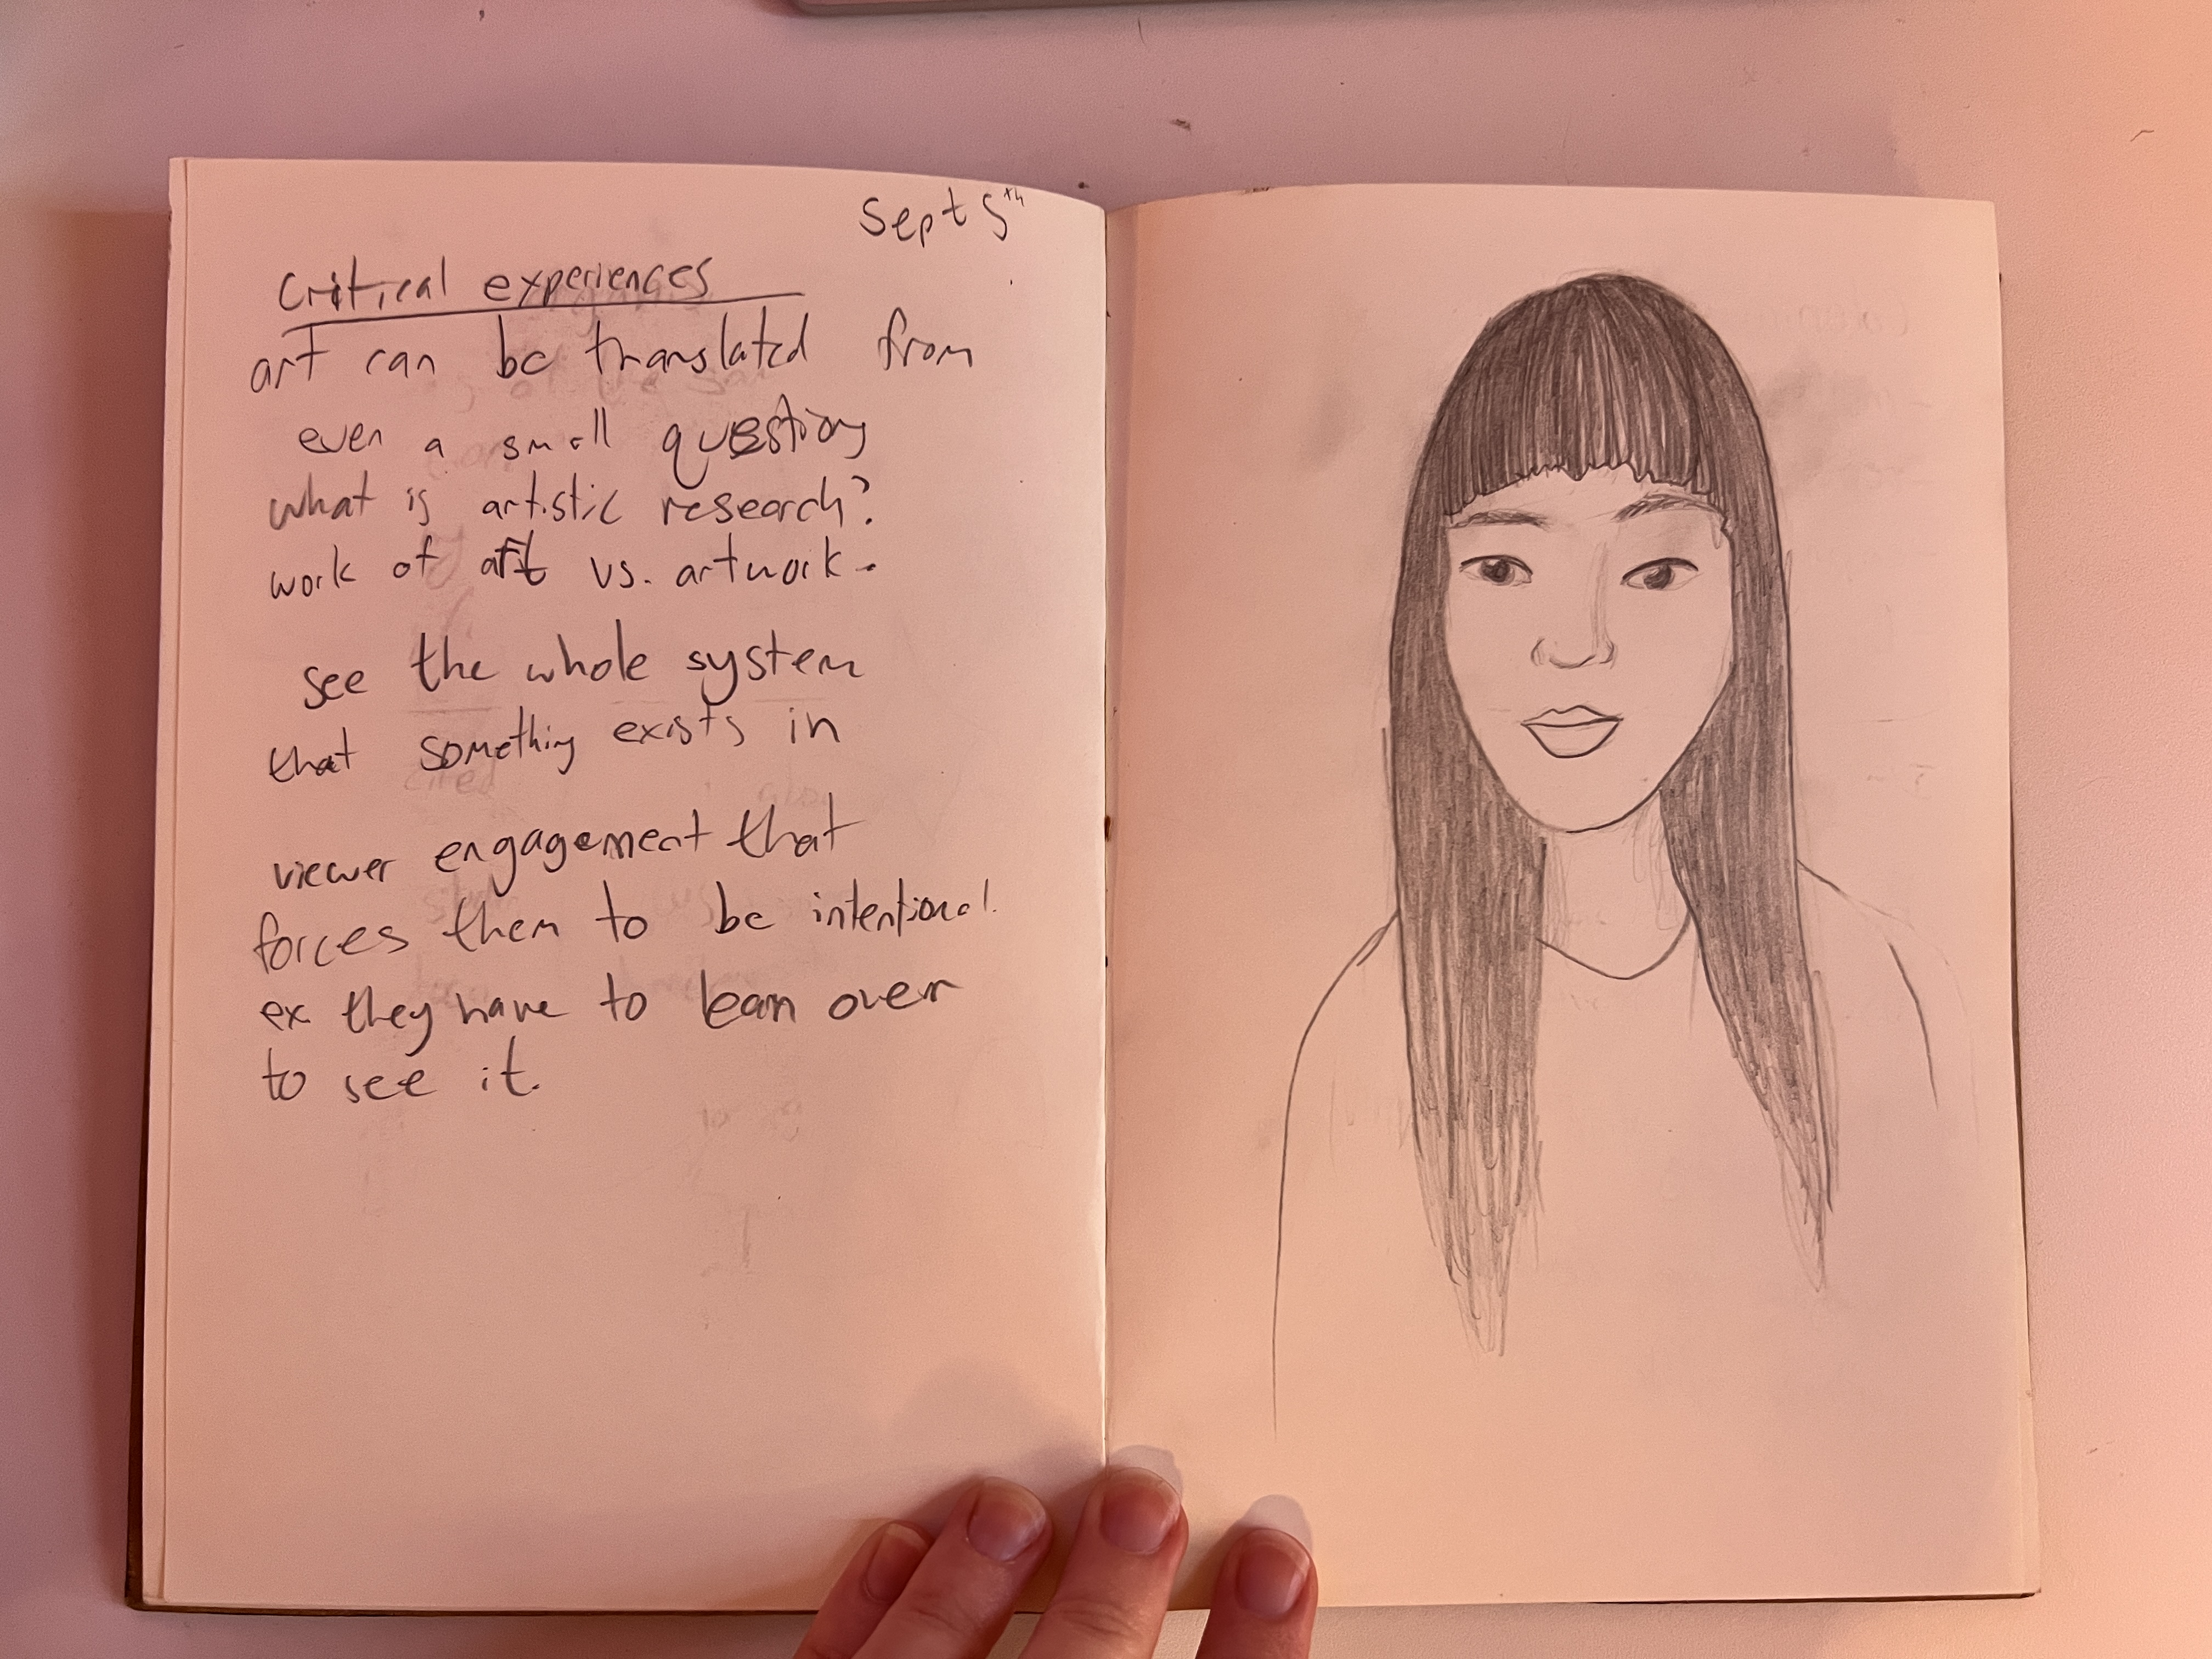 Sept 5th
Critical experiences
art can be translated from
even a small question
what is artistic research?
work of art vs. artwork.
see the whole system
that something exists in
viewer engagement that
forces them to be intentional.
ex they have to lean over
to see it.